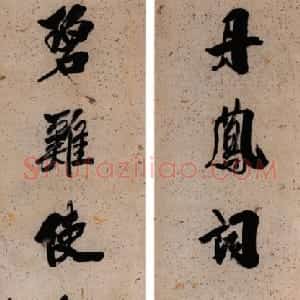 丹鳳詞
碧雞使
Shufaziliao.COM